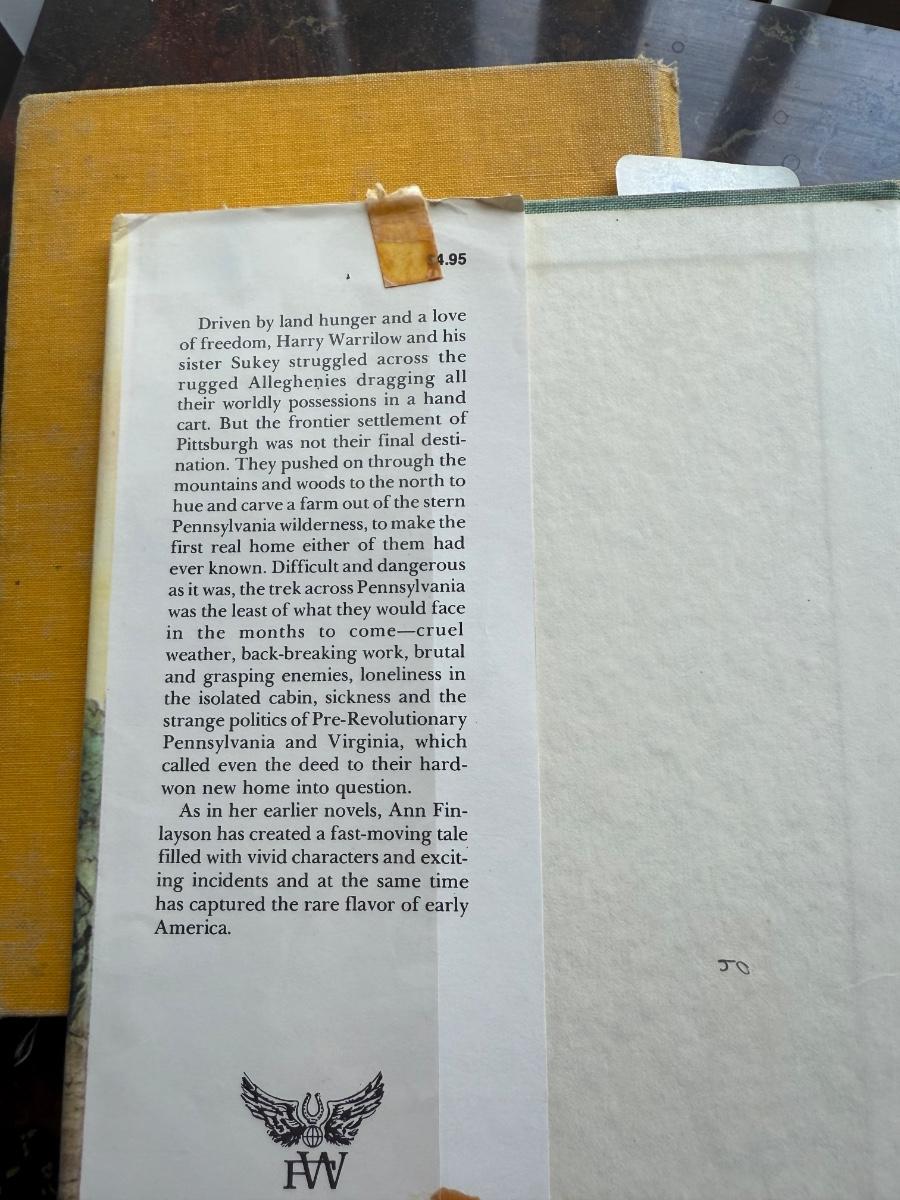 $4.95
Driven by land hunger and a love
of freedom, Harry Warrilow and his
sister Sukey struggled across the
rugged Alleghenies dragging all
their worldly possessions in a hand
cart. But the frontier settlement of
Pittsburgh was not their final desti-
nation. They pushed on through the
mountains and woods to the north to
hue and carve a farm out of the stern
Pennsylvania wilderness, to make the
first real home either of them had
ever known. Difficult and dangerous
as it was, the trek across Pennsylvania
was the least of what they would face
in the months to come—cruel
weather, back-breaking work, brutal
and grasping enemies, loneliness in
the isolated cabin, sickness and the
strange politics of Pre-Revolutionary
Pennsylvania and Virginia, which
called even the deed to their hard-
won new home into question.
As in her earlier novels, Ann Fin-
layson has created a fast-moving tale
filled with vivid characters and excit-
ing incidents and at the same time
has captured the rare flavor of early
America.
FW